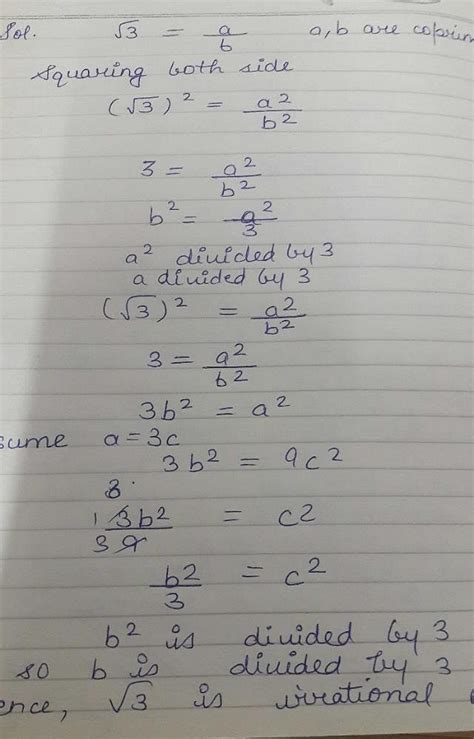 Sol. √3 = a/b a, b are coprim
Squaring both side
(√3)² = a²/b²
3 = a²/b²
b² = a²/3
a² divided by 3
a divided by 3
(√3)² = a²/b²
3 = a²/b²
3b² = a²
sume a = 3c
3b² = 9c²
3b²/9 = c²
b²/3 = c²
b² is divided by 3
so b is divided by 3
ence, √3 is irrational